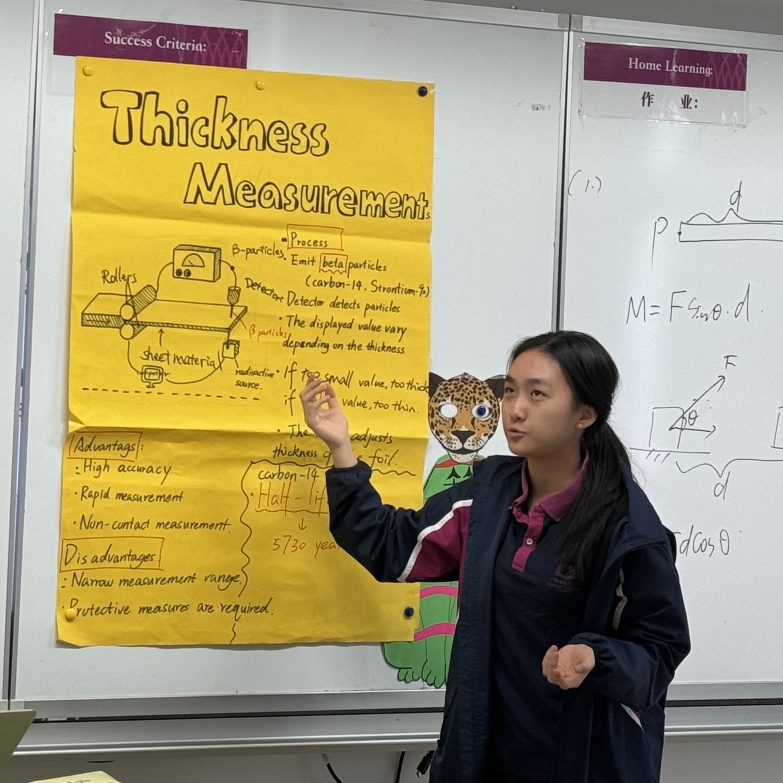 Success Criteria:
Home Learning:
作 业:
Thickness
Measurements
Rollers
β-particles
Detector
β particles
sheet material
radioactive
source.
· Process
Emit beta particles
(carbon-14. Strontium-90)
Detector detects particles
· The displayed value vary
depending on the thickness
· If too small value, too thick
if value, too thin.
· The adjusts
thickness foil.
Advantags:
- High accuracy
· Rapid measurement
· Non-contact measurement.
Disadvantages
: Narrow measurement range
· Protective measures are required.
carbon-14
Half-lif
↓
5730 yea
(1.)
d
P
M = F sinθ · d.
F
θ
d
dcosθ